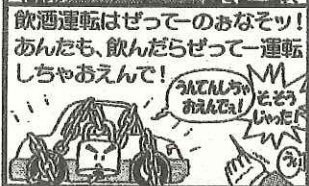 飲酒運転はぜってーのぉなそッ!
あんたも、飲んだらぜってー運転
しちゃおえんで!
うんてんしちゃ
おえんでぇ!
そ、そう
じゃった!
うぃ